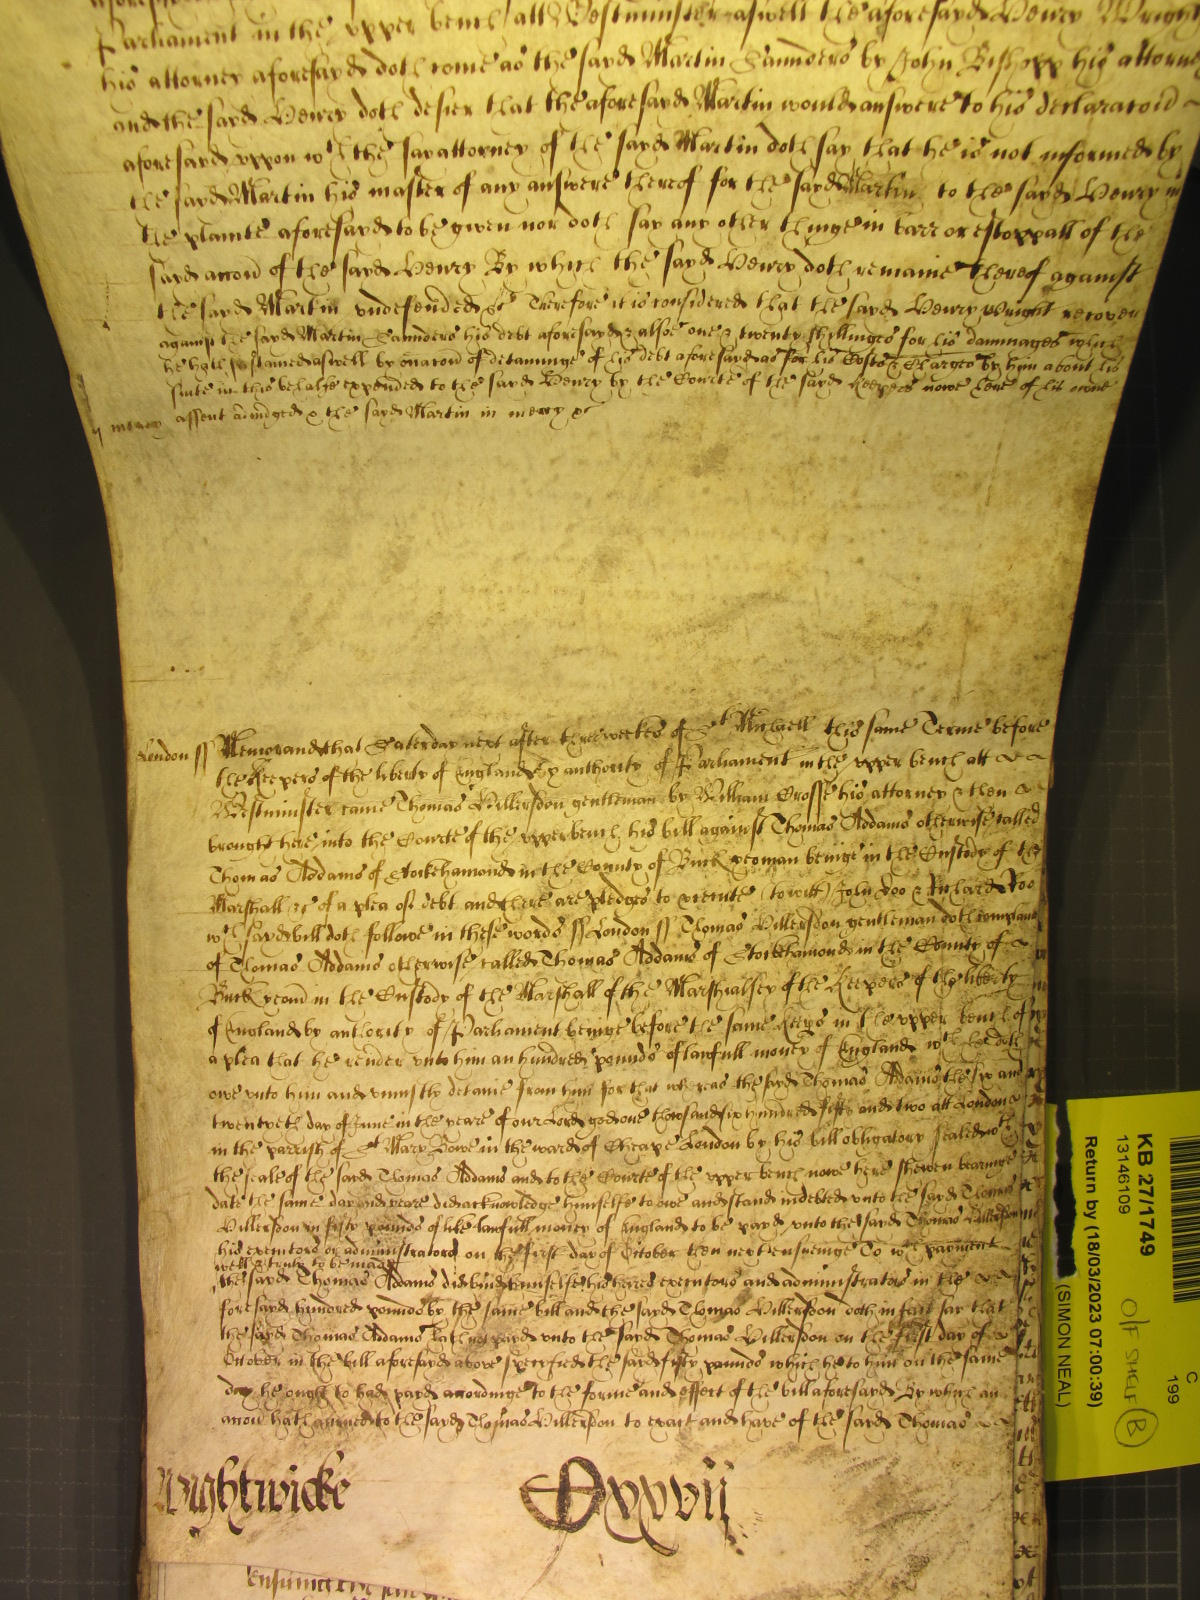 Parliament in the upper bench att Westminster aswell the aforesayd Henry Wright
his attorney aforesayd doth come as the sayd Martin Saunders by John Bishopp his attorney
and the sayd Henry doth desier that the aforesayd Martin would answere to his declaracon
aforesayd uppon wch the say attorney of the sayd Martin doth say that he is not informed by
the sayd Martin his master of any answere thereof for the sayd Martin to the sayd Henry in
the plainte aforesayd to be given nor doth say any other thinge in barr or estoppall of the
sayd accon of the sayd Henry By which the sayd Henry doth remaine thereof against
the sayd Martin undefended &c Therefore it is considered that the sayd Henry Wright recover
against the sayd Martin Saunders his debt aforesayd & alsoe one & twenty shillinges for his dammages which
he hath sustained aswell by occacon of detaininge of his debt aforesayd as for his Costs & Charges by him about his
suite in this behalfe expended to the sayd Henry by the Courte of the sayd Keepers nowe here of his owne
assent adiudged & the sayd Martin in mercy &c
mercy
London ss Memorand that Saterday next after three weekes of St Michaell this same Terme before
the Keepers of the liberty of England by authority of Parliament in the upper bench att
Westminster came Thomas Villersdon gentleman by William Crosse his attorney & then
brought here into the Courte of the upper bench his bill against Thomas Addams otherwise called
Thomas Addams of Stoikehamond in the County of Buck yeoman beinge in the Custody of the
Marshall &c of a plea of debt and there are pledges to prosecute (to witt) John Doo & Richard Roo
wch sayd bill doth followe in these words ss London ss Thomas Villersdon gentleman doth complaine
of Thomas Addams otherwise called Thomas Addams of Stoikehamond in the County of
Buck yeom in the Custody of the Marshall of the Marshialsey of the Keepers of the liberty
of England by authority of Parliament beinge before the same Keeps in the upper bench of
a plea that he render unto him an hundred pounds of lawfull money of England wch he doth
owe unto him and uniustly detaine from him for that whereas the sayd Thomas Addams the six and
twentyeth day of June in the yeare of our Lord god one thousand six hundred fifty and two att London
in the parrish of St Mary Bowe in the ward of Cheape London by his bill obligatory sealed wth
the seale of the sayd Thomas Addams and to the Courte of the upper bench nowe here shewen bearinge
date the same day and yeare did acknowledge himselfe to owe and stand indebted unto the sayd Thomas
Villersdon in fifty pounds of like lawfull money of England to be payd unto the sayd Thomas Villersdon
his executors or administrators on the first day of October then next ensueinge To wch payment
well & truly to be made
the sayd Thomas Addams did bind himselfe his heires executors and administrators in the
foresayd hundred pounds by the same bill and the sayd Thomas Villersdon doth in fact say that
the sayd Thomas Addams hath not payd unto the sayd Thomas Villersdon on the first day of
October in the bill aforesayd above specified the sayd fifty pounds which he to him on the same
day he ought to had payd accordinge to the forme and effect of the bill aforesayd By which an
accon hath accrued to the sayd Thomas Villersdon to exact and have of the sayd Thomas
Wightwicke
Cxxvii
KB 27/1749
13146109
Return by (18/03/2023 07:00:39)
(SIMON NEAL)
C
199
O/F SHELF B